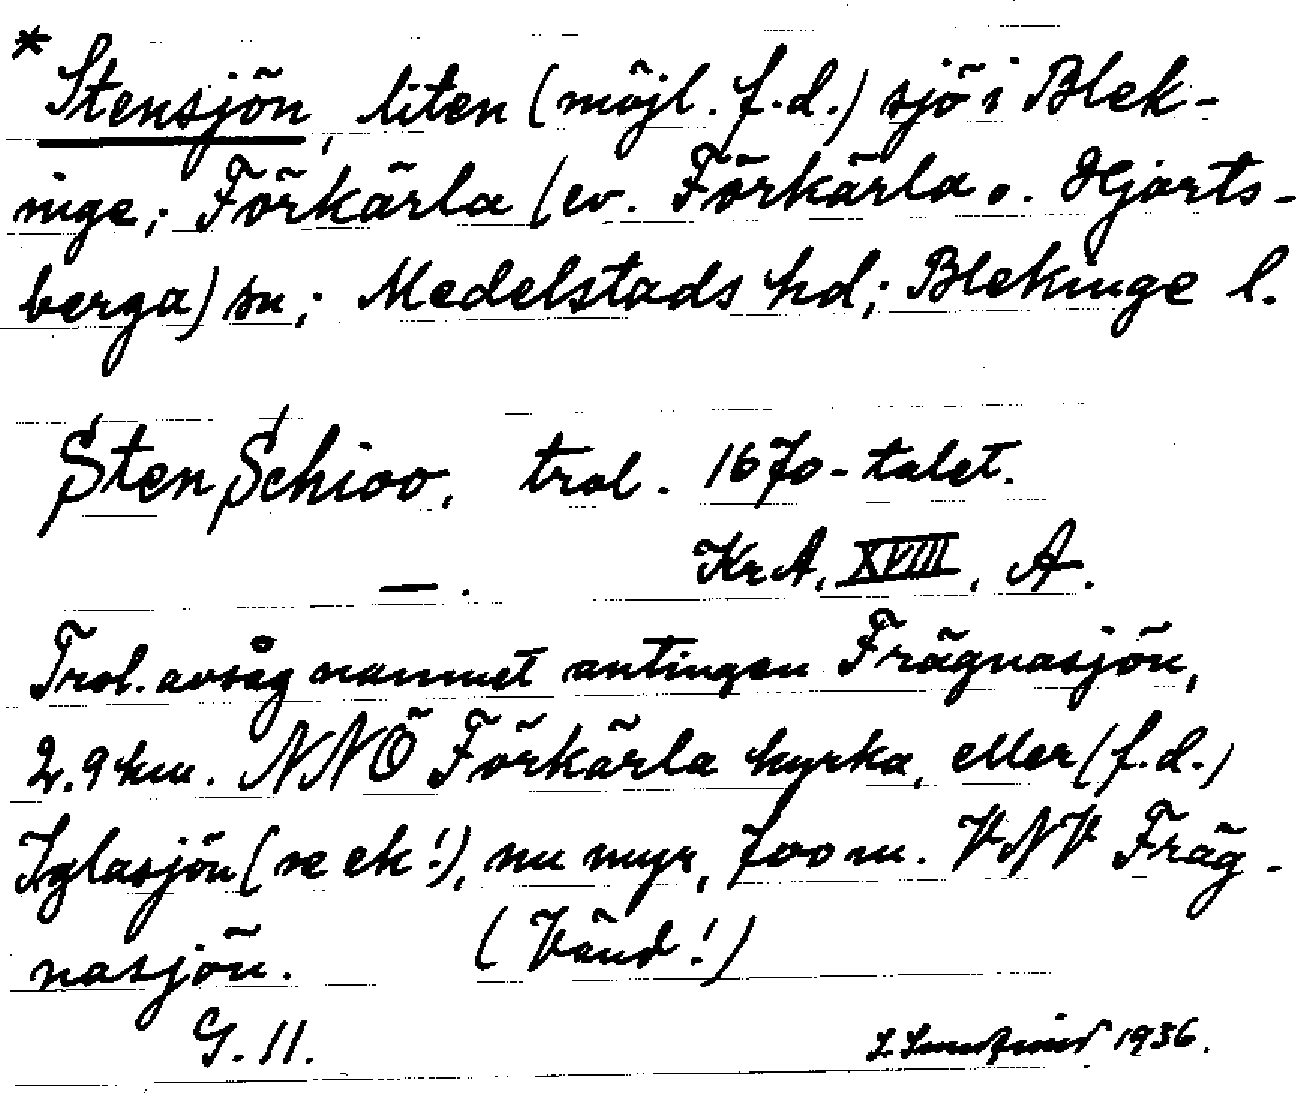 * Stensjön, liten (möjl. f.d.) sjö i Blek-
inge; Förkärla (ev. Förkärla o. Hjorts-
berga) sn; Medelstads hd; Blekinge l.
Sten Schioo, trol. 1670-talet.
—. KrA, XVIII, A.
Trol. avsåg namnet antingen Frägnasjön,
2.9 km. NNÖ Förkärla kyrka, eller (f.d.)
Iglasjön (se ek!), nu myr, 700 m. VNV Fräg-
nasjön. (Vänd!)
G. 11. 1936.